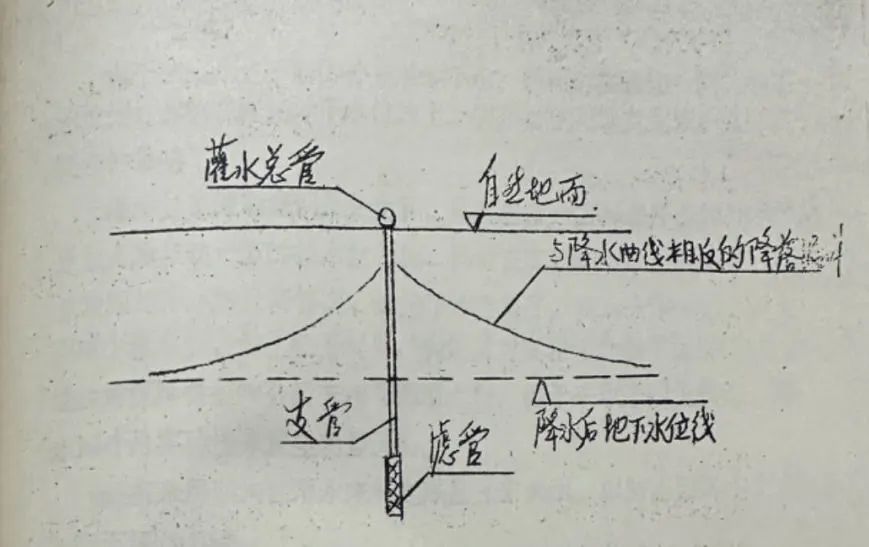 灌水总管
自然地面
与降水曲线相反的降落
支管
滤管
降水后地下水位线